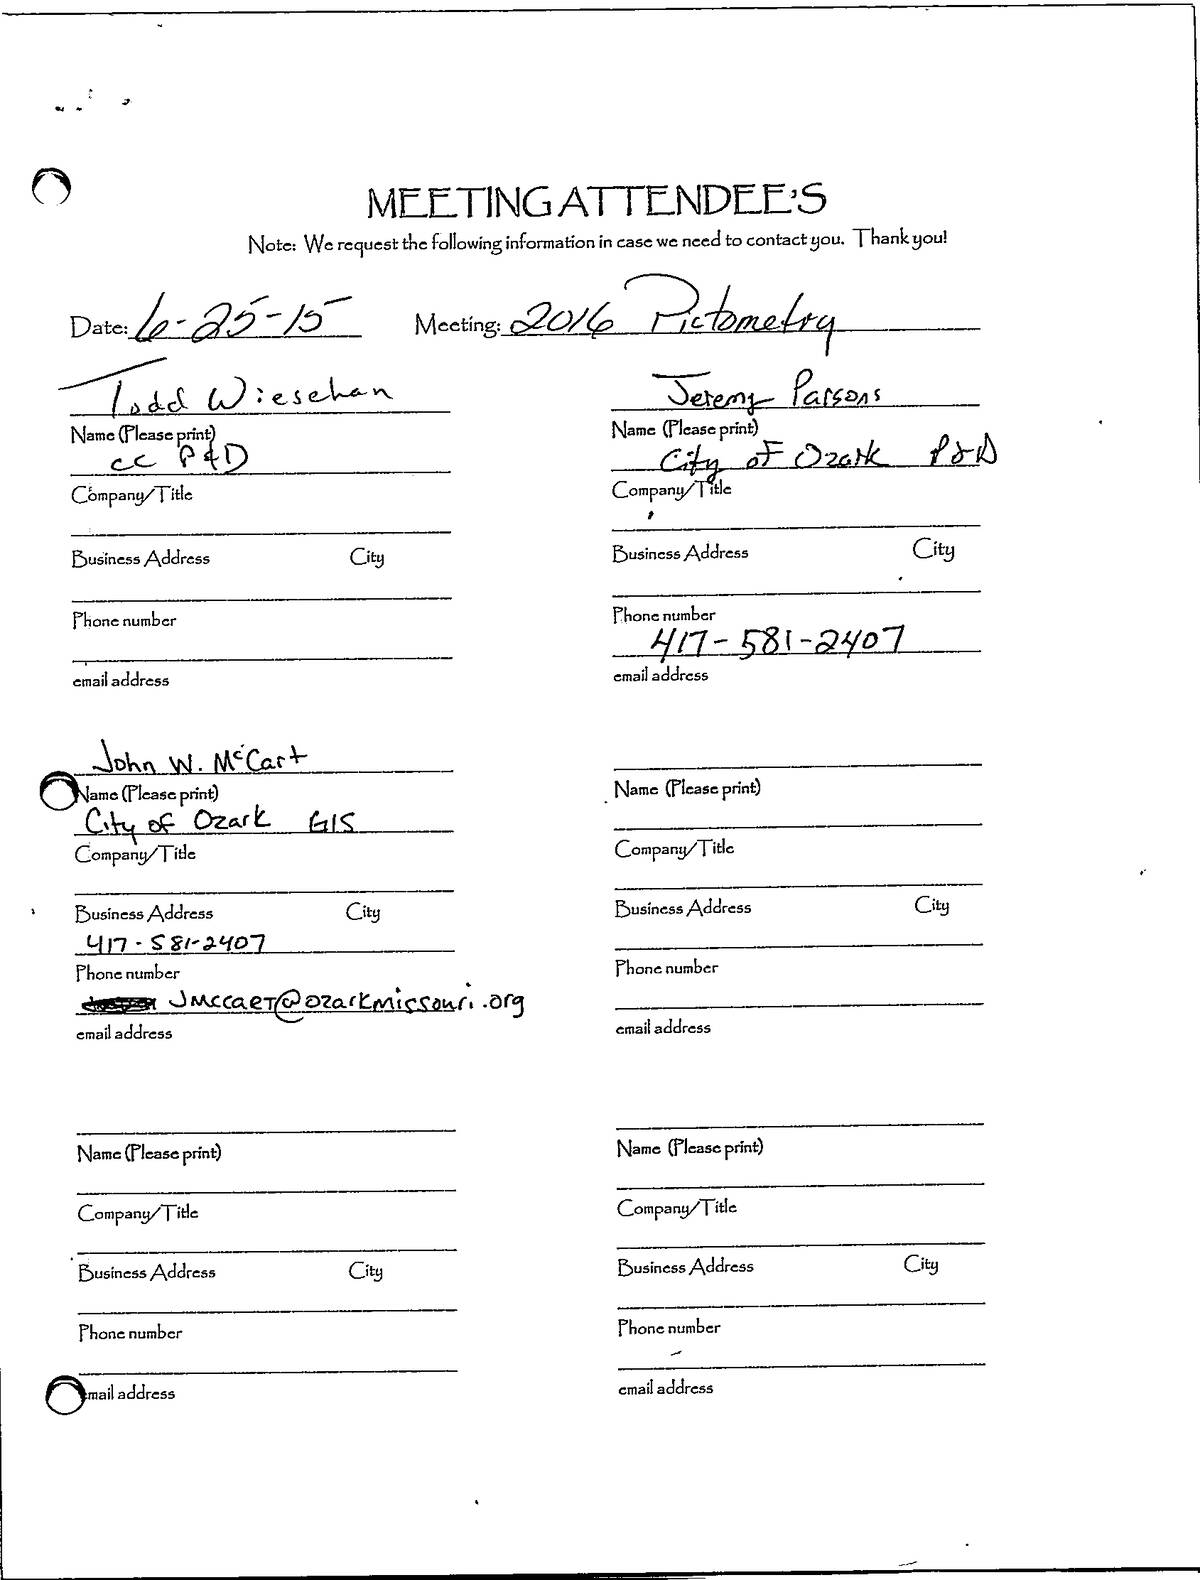 MEETING ATTENDEE'S
Note: We request the following information in case we need to contact you. Thank you!
Date: 6-25-15 Meeting: 2016 Pictometry
Todd Wiesehan
Name (Please print)
CC P&D
Company/Title
Business Address City
Phone number
email address
Jeremy Parsons
Name (Please print)
City of Ozark P&D
Company/Title
Business Address City
Phone number
417-581-2407
email address
John W. McCart
Name (Please print)
City of Ozark GIS
Company/Title
Business Address City
417-581-2407
Phone number
JMCCART@ozarkmissouri.org
email address
Name (Please print)
Company/Title
Business Address City
Phone number
email address
Name (Please print)
Company/Title
Business Address City
Phone number
email address
Name (Please print)
Company/Title
Business Address City
Phone number
email address